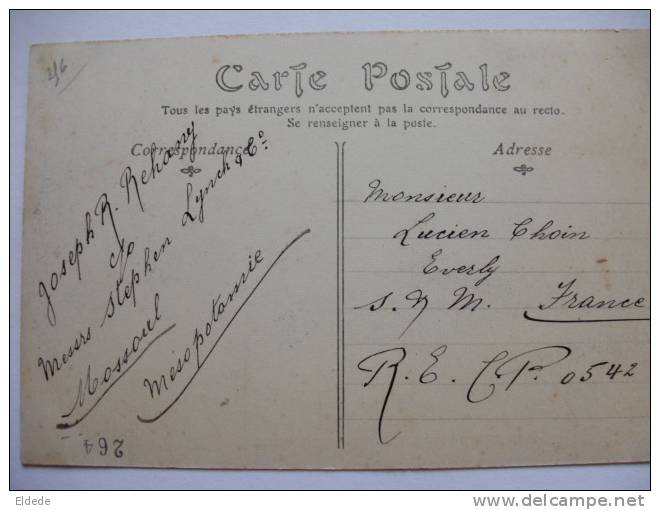 2/6
Carte Postale
Tous les pays étrangers n'acceptent pas la correspondance au recto.
Se renseigner à la poste.
Correspondance
Joseph R. Rehany
c/o
Messrs Stephen Lynch & Co.
Mossoul
Mésopotamie
264
Adresse
Monsieur
Lucien Choin
Everly
S. & M. France
R. E. C. P. 0542
Eldede
delcampe.net